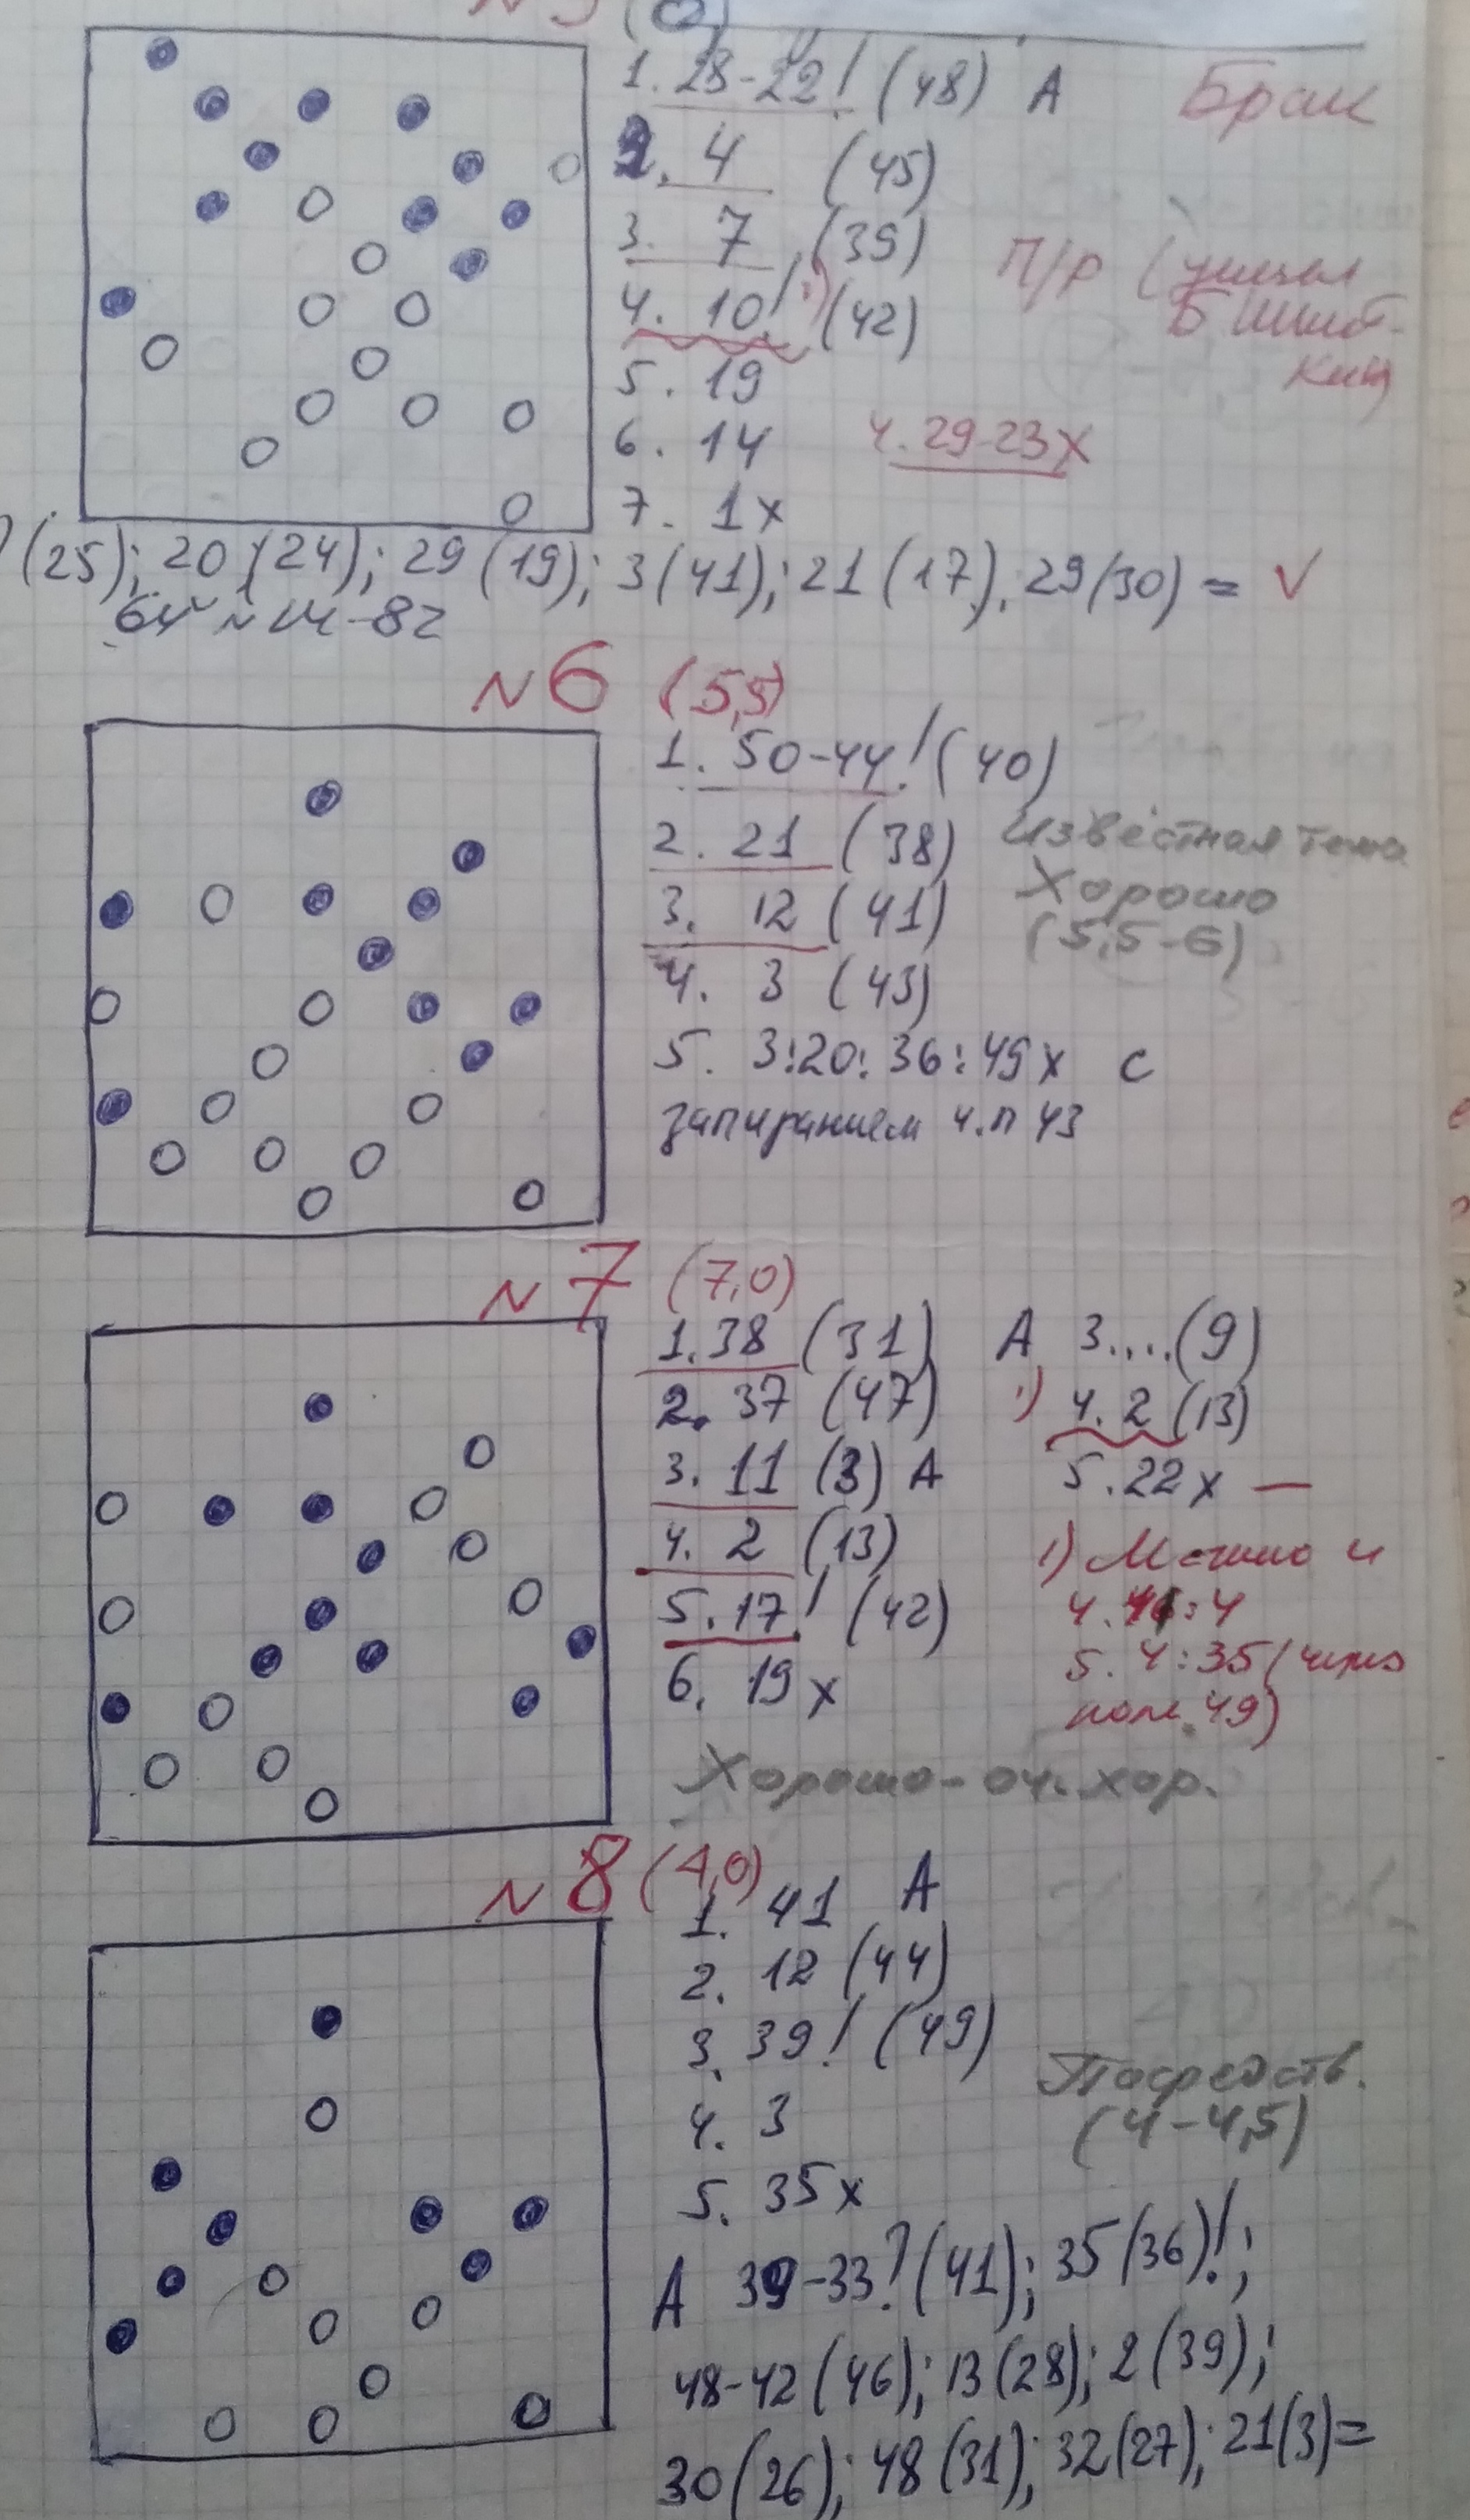 1. 28-22! (48) А Брак
2. 4 (45)
3. 7 (39) П/р (
4. 10! ¹) (42)
5. 19
6. 14 4. 29-23х
7. 1х
(25); 20 (24); 29 (19); 3 (41); 21 (17), 29 (30) = V
N6 (5,5)
1. 50-44! (40)
2. 21 (38) Известная тема
3. 12 (41) Хорошо
(5,5-6)
4. 3 (43)
5. 3:20:36:49х с
запиранием ч.п 43
N7 (7,0)
1. 38 (31) А 3....(9)
2. 37 (47) ¹) 4. 2 (13)
3. 11 (3) А 5. 22х —
4. 2 (13) ¹) Можно и
5. 17! (42) 4. :4
6. 19х 5. 4:35 (через
поле 49)
Хорошо-оч. хор.
N8 (4,0)
1. 41 А
2. 12 (44)
3. 39! (49)
4. 3 Посредств.
(4-4,5)
5. 35х
А 39-33? (41); 35 (36)!;
48-42 (46); 13 (28); 2 (39);
30 (26); 48 (31); 32 (27); 21 (3) =